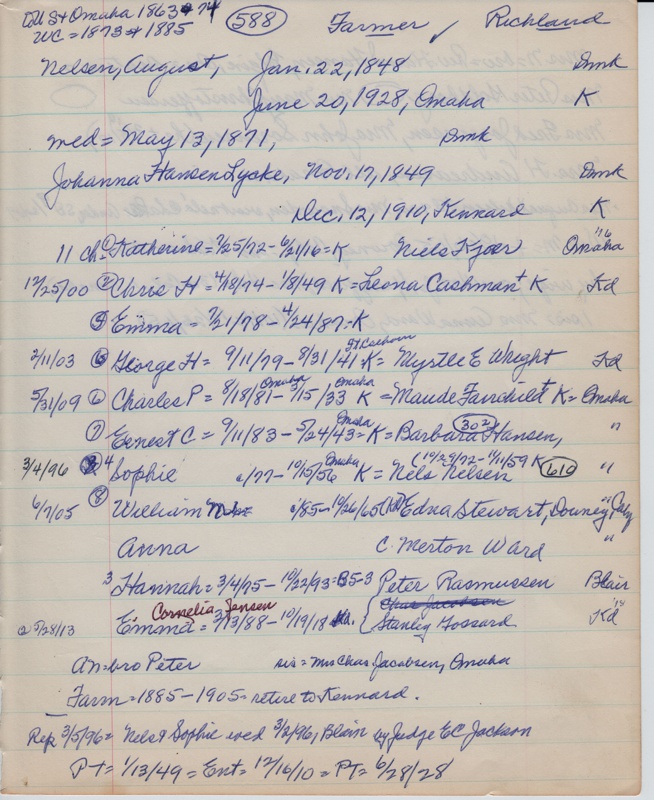 Col St Omaha 1863 + 74 588 Farmer ✓ Richland
WC = 1873 + 1885
Nelsen, August, Jan. 22, 1848 Dmk
June 20, 1928, Omaha K
wed = May 13, 1871, Dmk
Johanna Hansen Lycke, Nov. 17, 1849 Dmk
Dec. 12, 1910, Kennard K
11 ch. Katherine = 7/25/72 - 6/21/16 = K Niels Kjoer Omaha '16
12/25/00 ② Chris H = 4/18/74 - 1/8/49 K = Leona Cashman + K Kd
⑤ Emma = 7/21/78 - 4/24/87 = K
2/11/03 ⑥ George H = 9/11/79 - 8/31/41 Ft Calhoun = K = Myrtle E Wright Kd
5/31/09 ⑥ Charles P = 8/18/81 Omaha - 3/15/33 Omaha K = Maude Fairchild + K = Omaha
⑦ Ernest C = 9/11/83 - 5/24/43 Omaha = K = Barbara Hansen, 302 "
3/4/96 4 Sophie 1/77 - 10/15/56 Omaha K = Nels Nelsen (10/29/72 - 11/11/59 K 610 "
6/7/05 ⑧ William 1/85 - 10/26/65 Edna Stewart, Downey, "
Anna C. Merton Ward "
3 Hannah = 3/4/75 - 10/22/93 = B5-3 Peter Rasmussen Blair
Cornelia Jensen Chas Jacobsen
5/28/13 Emma = 3/13/88 - 10/19/18 { Stanley Gossard Kd '14
An = bro Peter sis = Mrs Chas. Jacobsen, Omaha
Farm = 1885 - 1905 = retire to Kennard.
Rep 3/5/96 = Nels & Sophie wed 3/2/96, Blair by Judge E C Jackson
PT = 1/13/49 = Ent = 12/16/10 = PT = 6/28/28